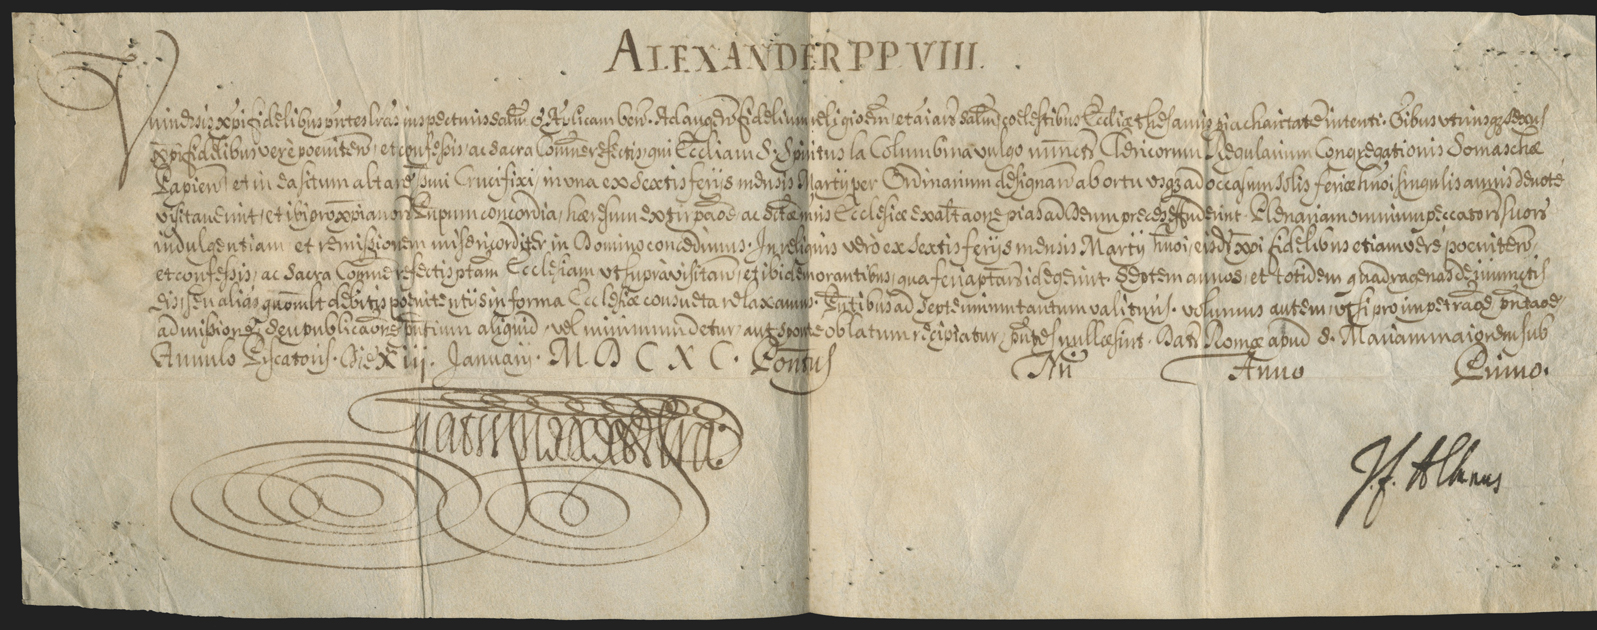 ALEXANDER PP VIII.
Universis xpi fidelibus pntes lras inspecturis salm et Aplicam ben. Ad augen fidelium religionem, et aiar salm, coelestibus Ecclix thesauris pia charitate intenti. Oibus utriusq sexus
xpi fidelibus vere poeniten, et confessis, ac sacra Comne refectis, qui Eccliam S. Spiritus la Columbina vulgo nuncta Clericorum Regularium Congregationis Somaschae
Papien, et in ea situm altare Smi Crucifixi, in una ex sextis ferijs mensis Martij per Ordinarium designan ab ortu usq ad occasum solis feriae hmoi singulis annis devote
visitaverint, et ibi pro xpianor Pnpum concordia, haeresum extir paoe, ac stae mris Ecclesiae exaltaone pias ad Deum preces effuderint. Plenariam omnium peccator suor
indulgentiam, et remissionem misericorditer in Domino concedimus. In reliquis vero ex sextis ferijs mensis Martij hmoi, eisd xpi fidelibus etiam vere poeniten,
et confessis, ac sacra Comne refectis ptam Eccliam ut supra visitan, et ibidem orantibus, qua feria ptar id egerint septem annos, et totidem quadragenas de iniunctis
eis, seu alias quomlt debitis poenitentijs in forma Ecclesiae consueta relaxamus. Pntibus ad Septennium tantum valituris. Volumus autem, ut si pro impetraoe, pntaoe,
admissione, seu publicaone pntium aliquid, vel minimum detur, aut sponte oblatum recipiatur, pntes nullae sint. Dat Romae apud S. Mariam maiorem sub
Annulo Piscatoris. Die Xiij. Januarij. M.D C X C. Pontus Nri Anno Primo.
J. F. Albanus